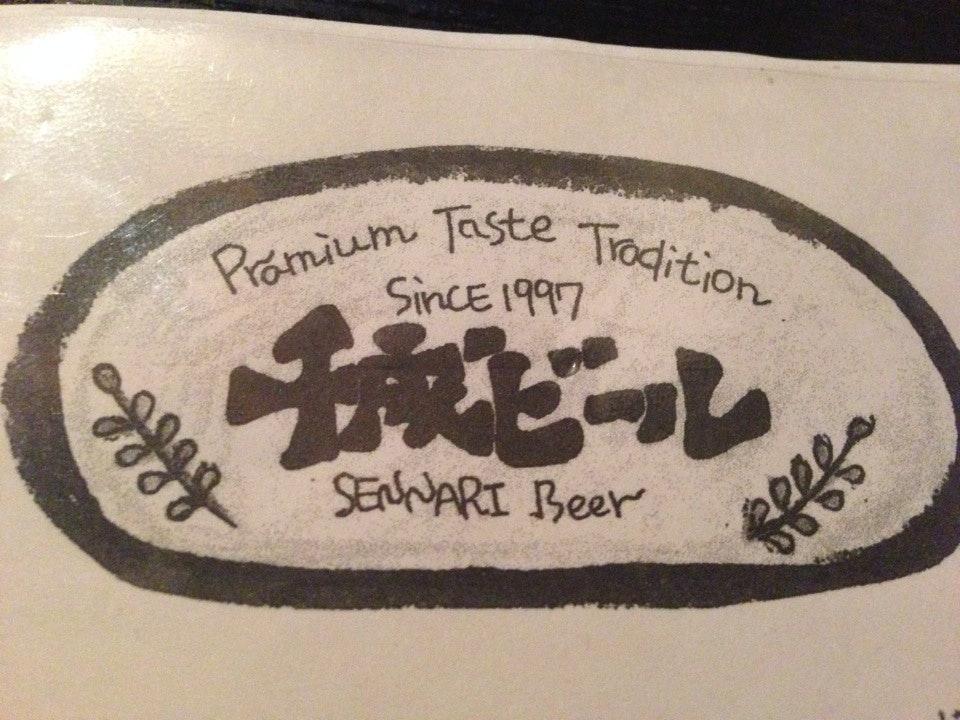 Pramium Taste Tradition
SincE 1997
千成ビール
SENNARI Beer